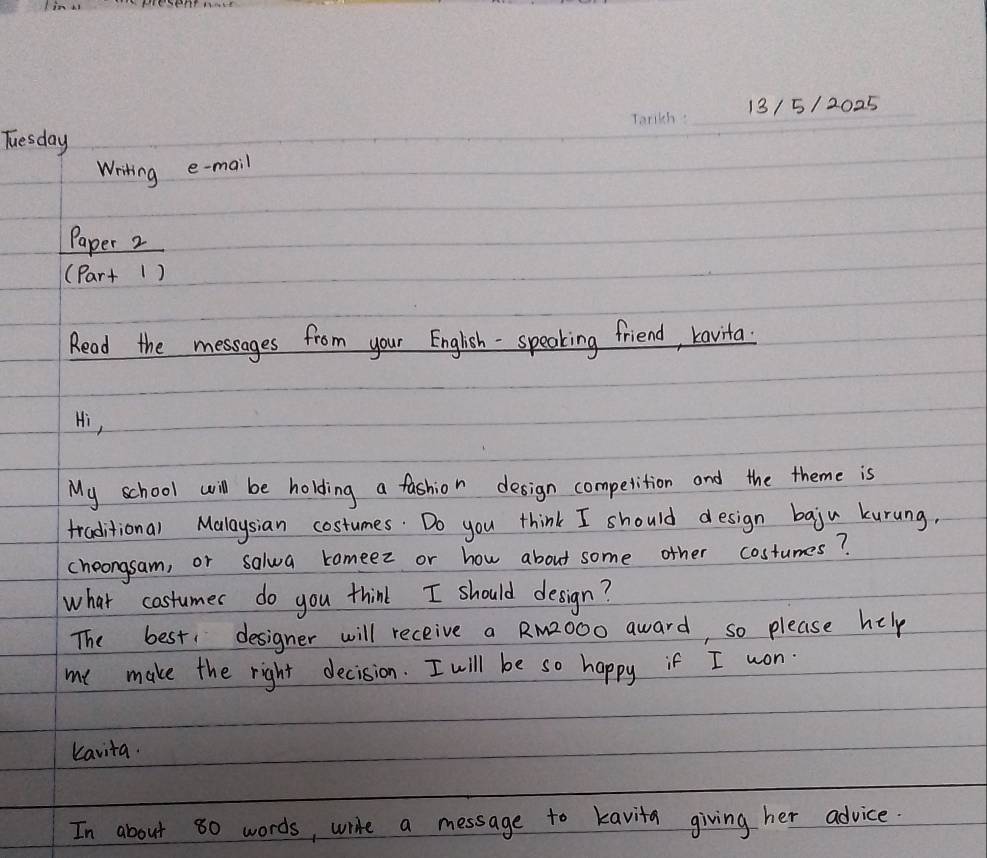 13/5/2025
Tarikh :
Tuesday
Writing e-mail
Paper 2
(Part 1)
Read the messages from your English-speaking friend, kavita.
Hi,
My school will be holding a fashion design competition and the theme is
traditional Malaysian costumes. Do you think I should design baju kurung,
cheongsam, or salwa kameez or how about some other costumes?
What costumes do you think I should design?
The best designer will receive a RM2000 award, so please help
me make the right decision. I will be so happy if I won.
Kavita.
In about 80 words, write a message to kavita giving her advice.